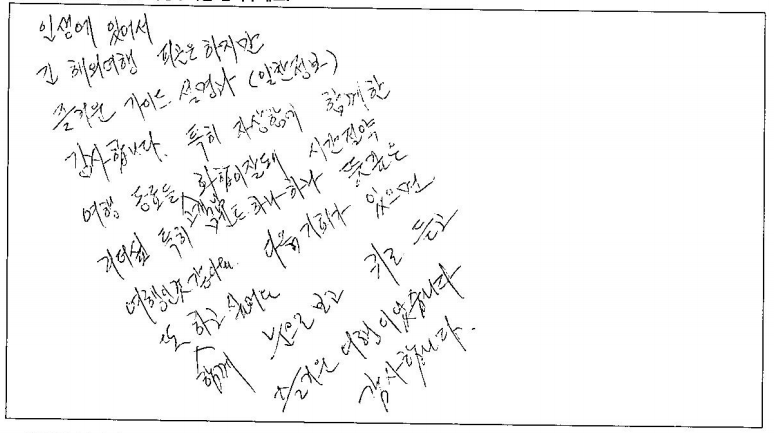 인생에 있어서
긴 해외여행 피곤은 하지만
즐거운 가이드 설명과 (알찬정보)
감사합니다. 특히 자상함에 함께한
여행 동료들 화합이잘되 시간절약
리더쉽 특히 하나하나 뜻깊은
여행인것 같아요. 다음기회가 있으면
또 하고 싶어요
함께 눈으로 보고 귀로 듣고
즐거운 여행 이었습니다
감사합니다.